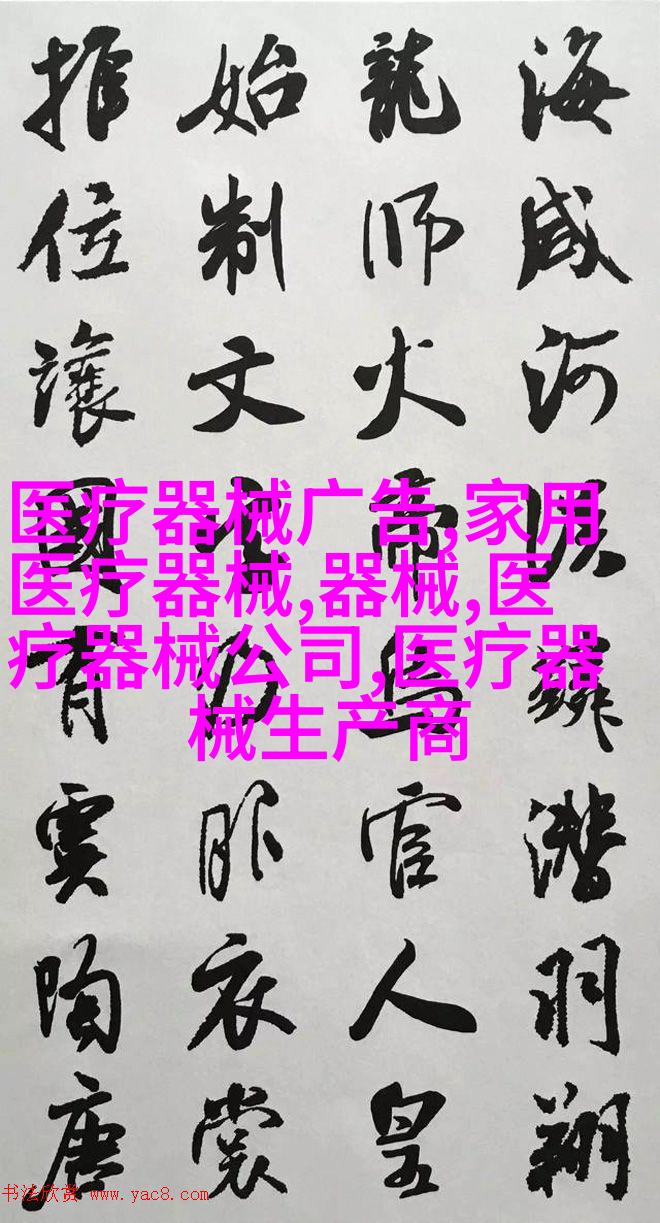 海咸河淡鱗潛羽翔
龍師火帝鳥官人皇
始制文字乃服衣裳
推位讓國有虞陶唐
医疗器械广告,家用
医疗器械,器械,医
疗器械公司,医疗器
械生产商
书法欣赏 www.yac8.com